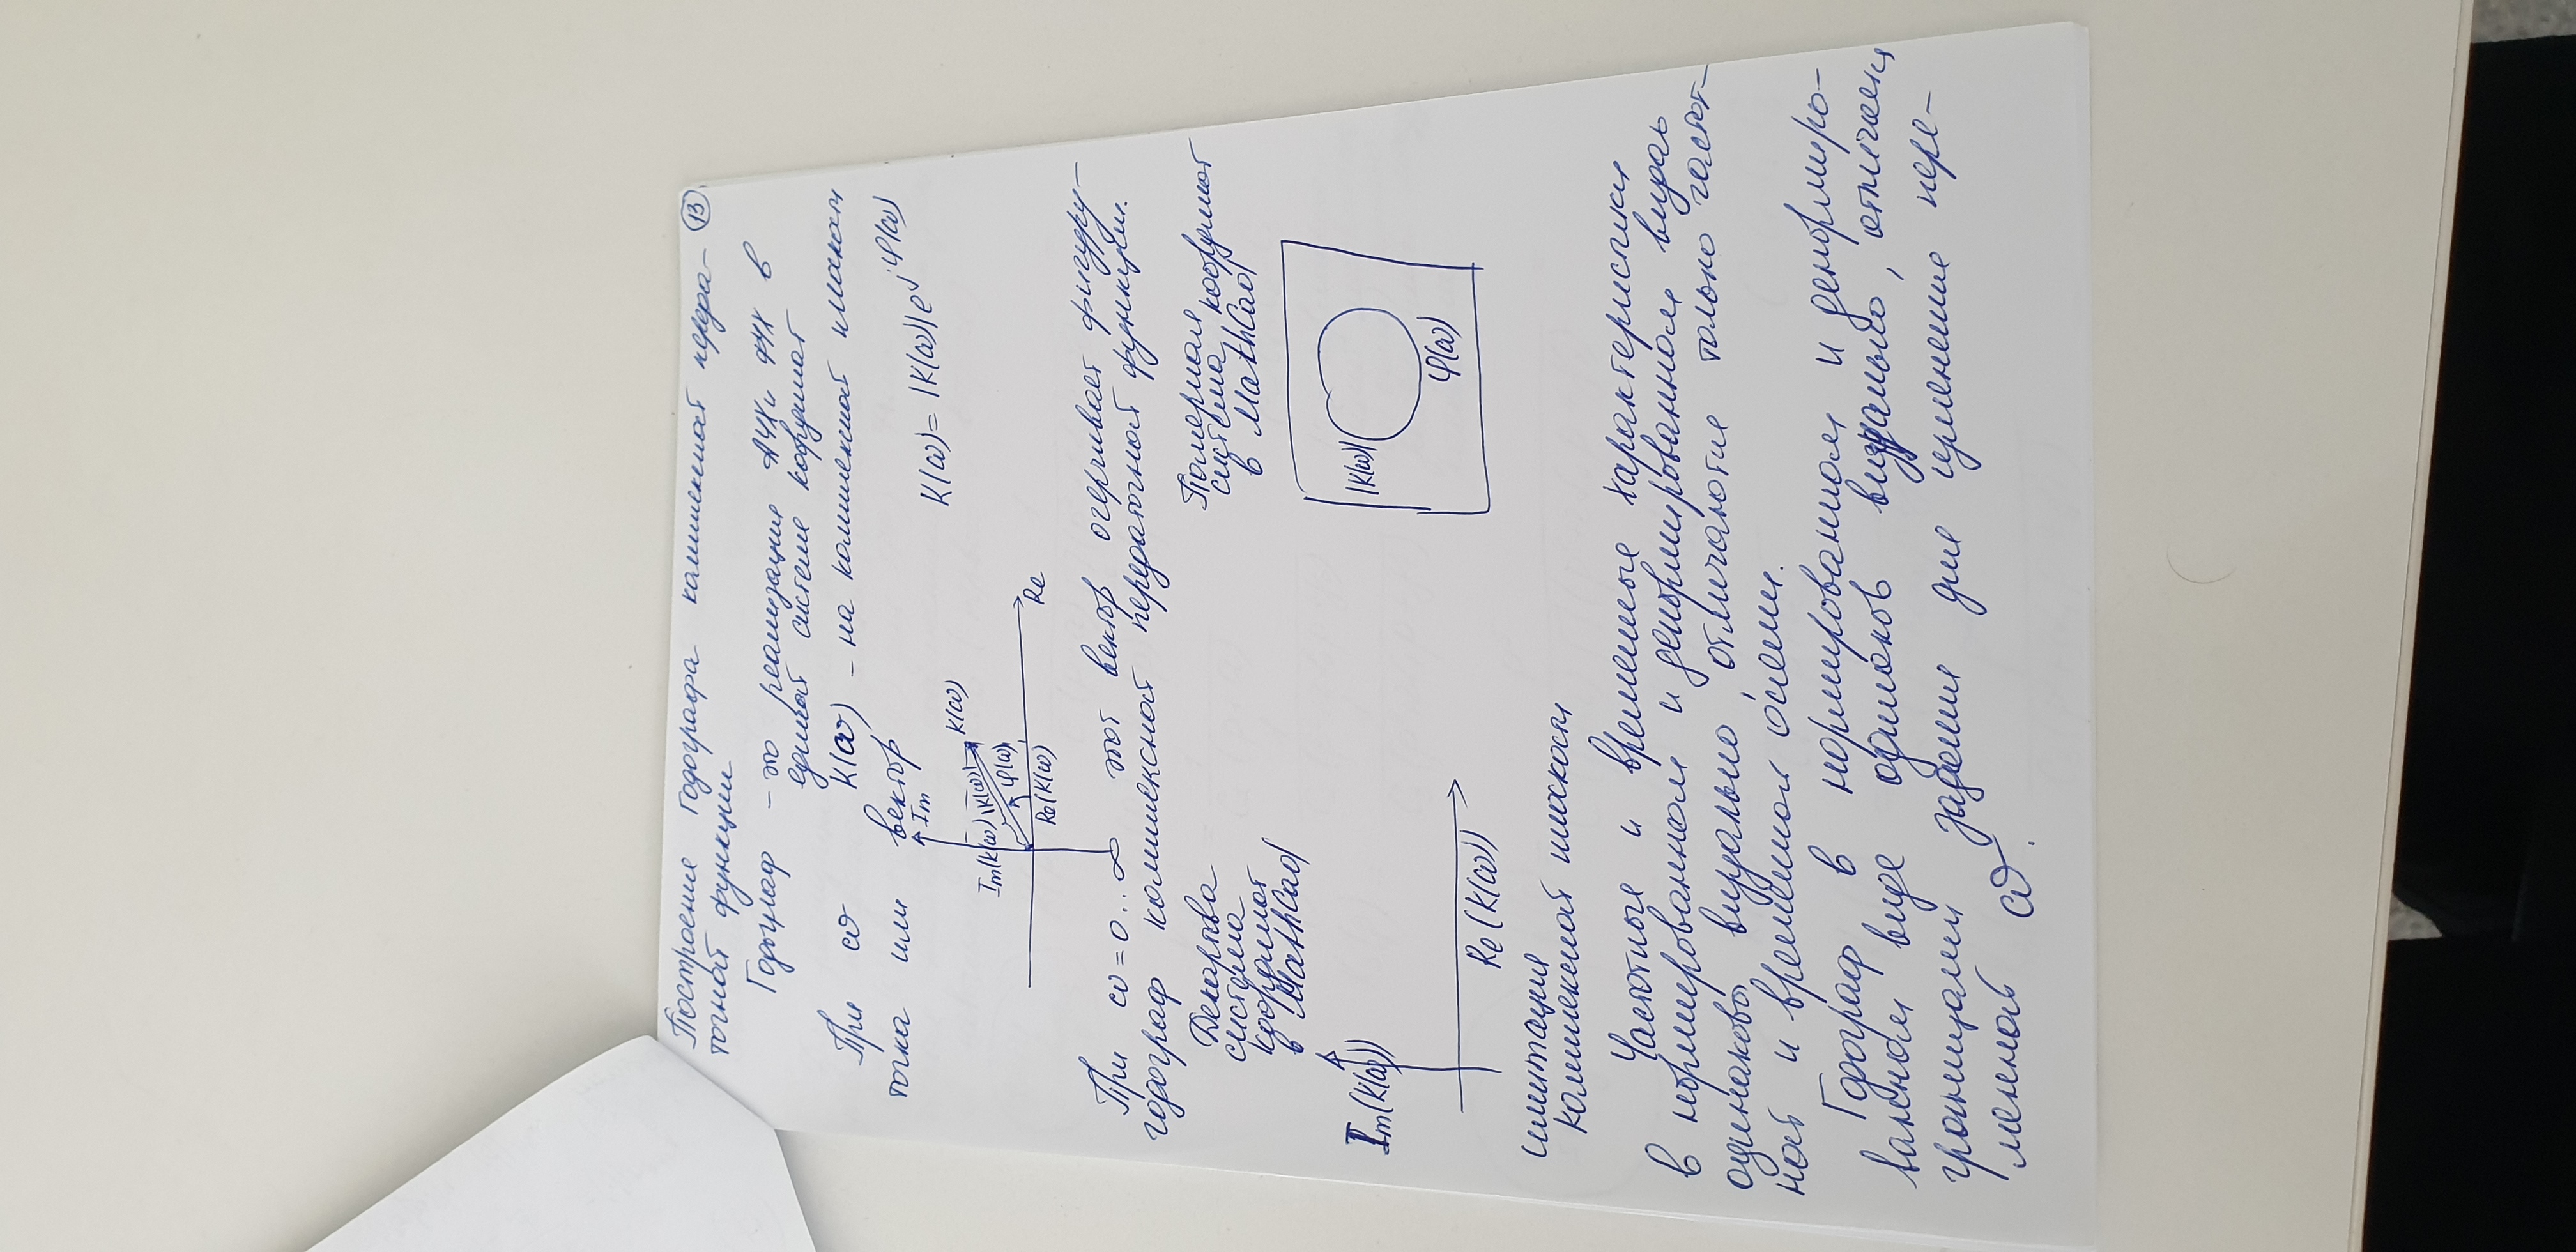 Построение годографа комплексной переда-
13
точной функции
Годограф - это реализация АЧХ и ФЧХ в
единой системе координат
При ω K(ω) - на комплексной плоскости
точка или вектор
Im
K(ω) = |K(ω)|e^{jφ(ω)}
K(ω)
Im(K(ω) |K(ω)|
φ(ω)
Re(K(ω)
Re
При ω = 0..∞ этот вектор очерчивает фигуру-
годограф комплексной передаточной функции.
Декартова
система
координат
в MathCad
Полярная
система координат
в MathCad
Im(K(ω))
Re(K(ω))
|K(ω)|
φ(ω)
имитация
комплексной плоскости
Частотные и временные характеристики
в нормированном и денормированном видах
одинаковы визуально, отличаются только частот-
ной и временной осями.
Годограф в нормированном и денормиро-
ванном виде одинаков визуально, отличается
границами задания для изменения пере-
менной ω.